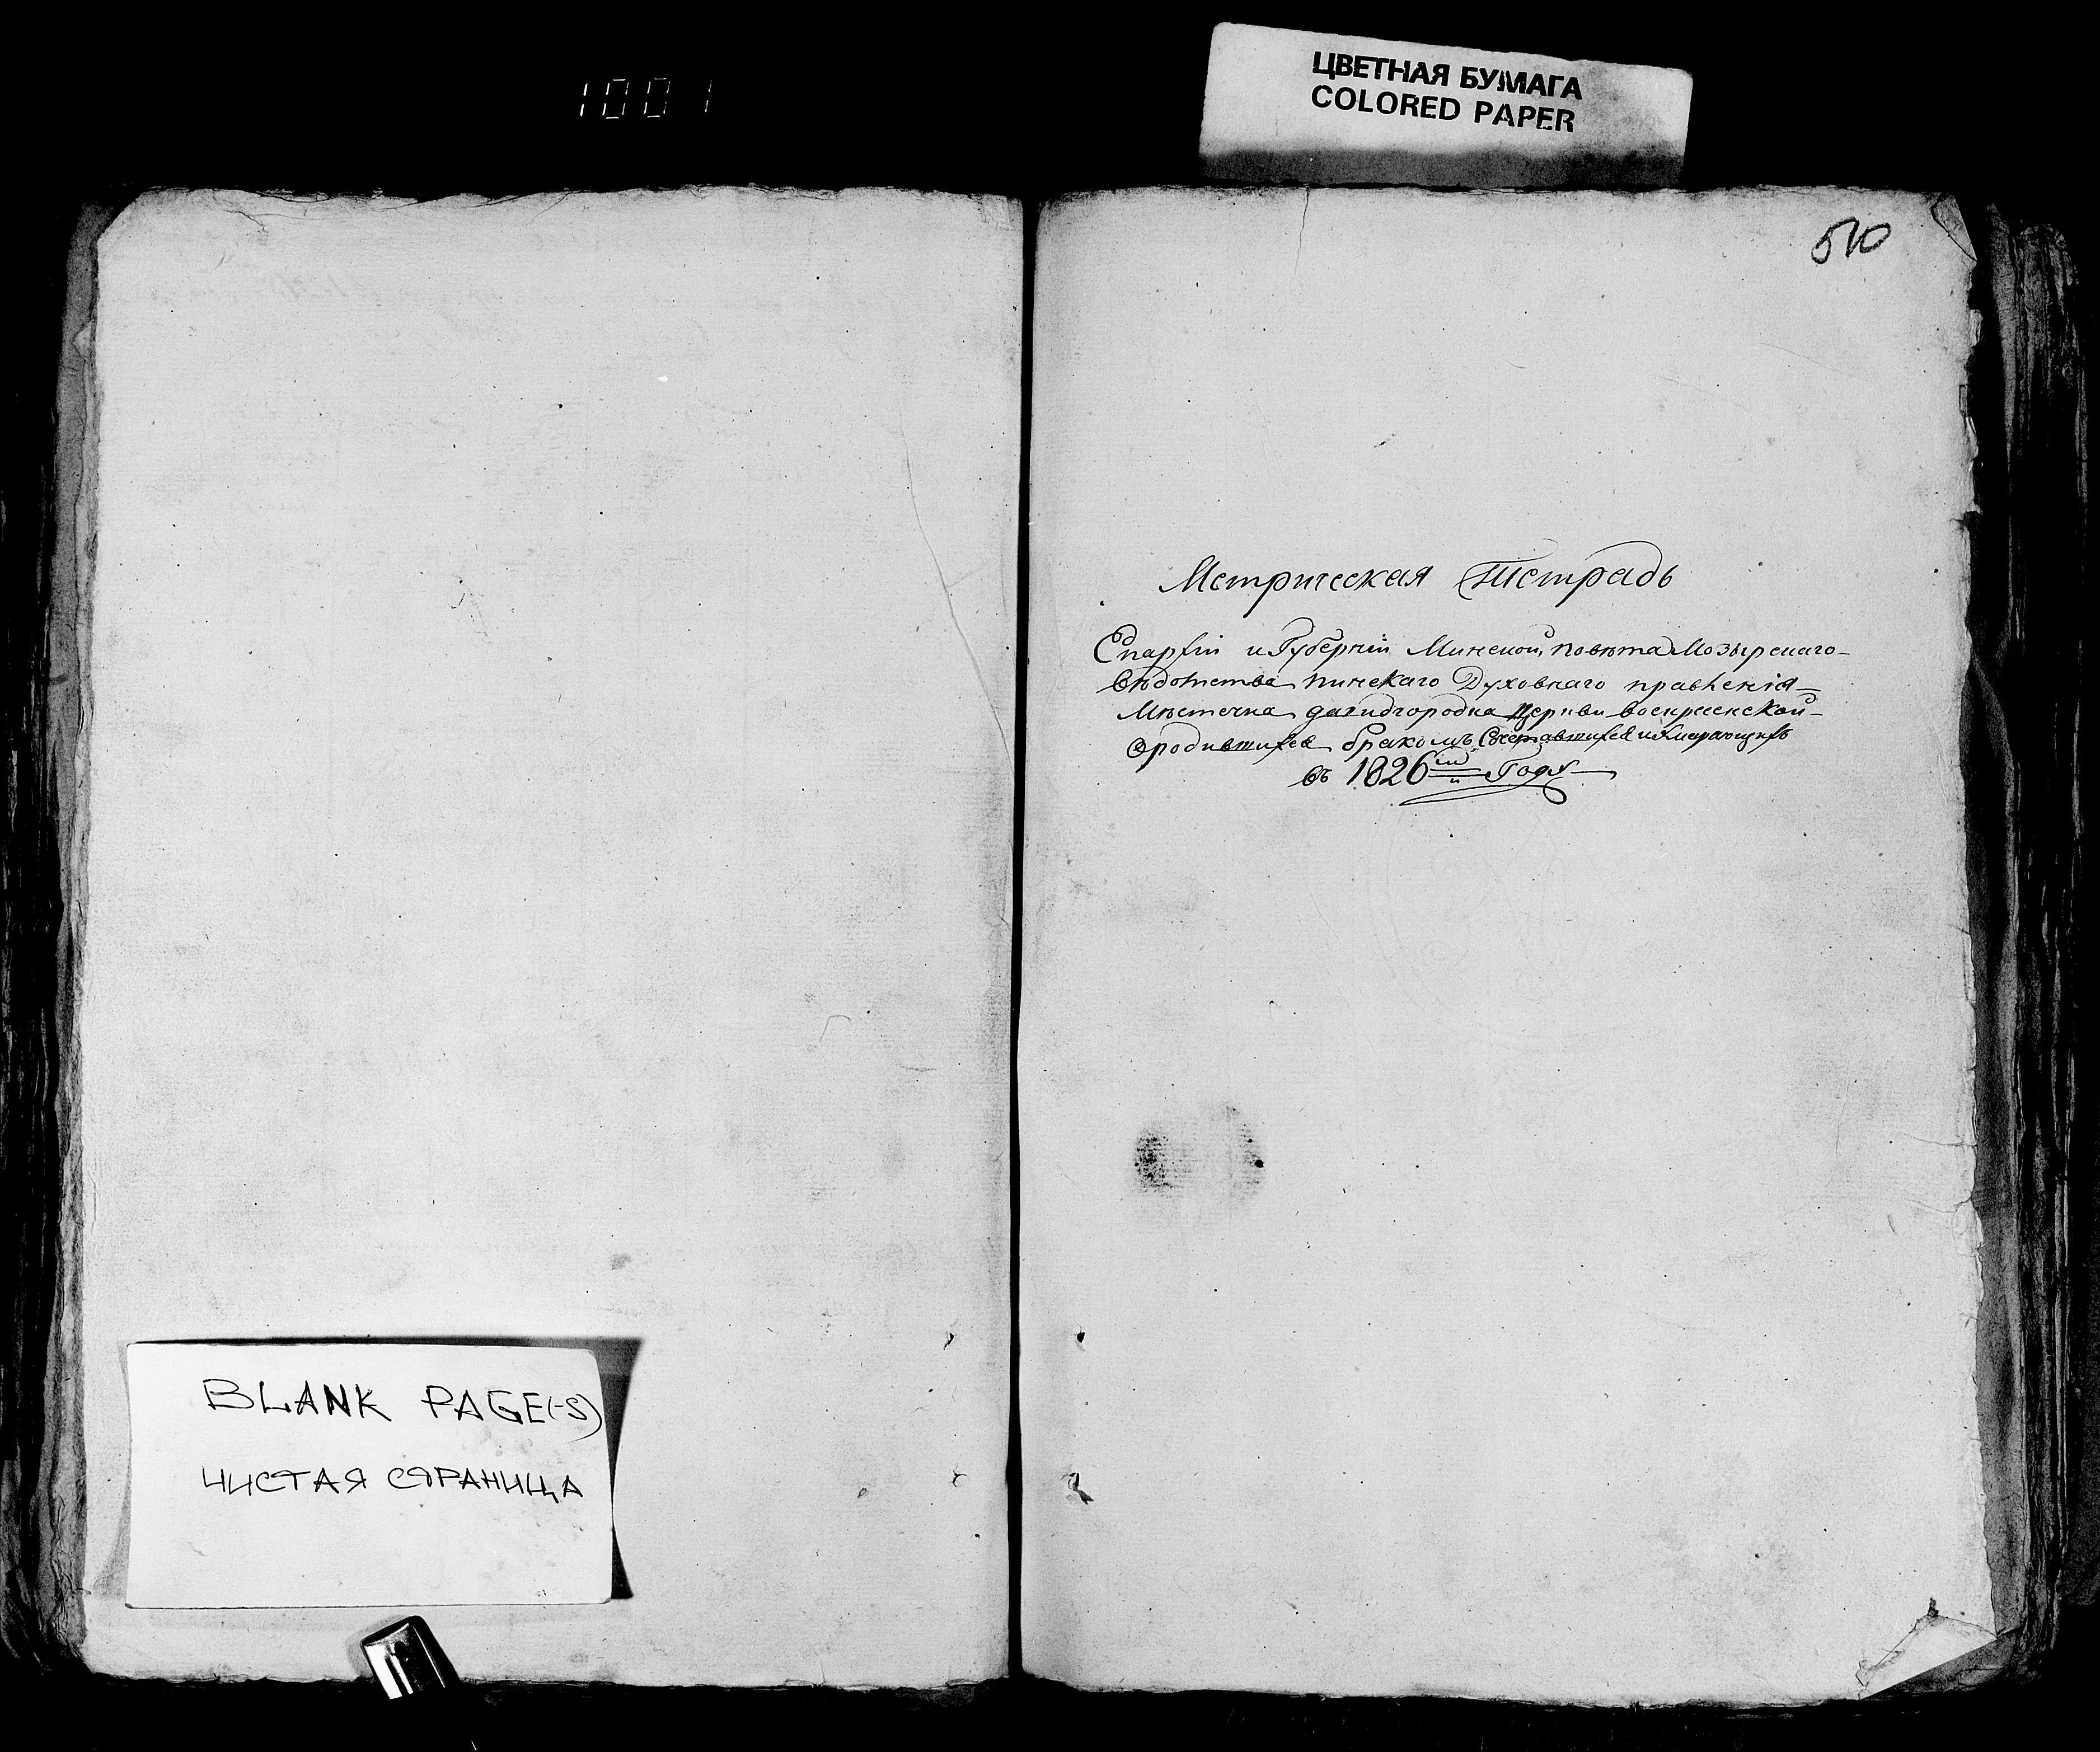 1001
ЦВЕТНАЯ БУМАГА
COLORED PAPER
510
Метрическая тетрадь
Епархіи и Губерніи Минской, повѣта Мозырскаго
вѣдомства пинскаго Духовнаго правленія
Мѣстечка давидгородка Церкви воскресенской
ородившихся бракомъ Сочетавшихся и Умирающихъ
въ 1826мъ Годѣ
BLANK PAGE(-S)
ЧИСТАЯ СТРАНИЦА